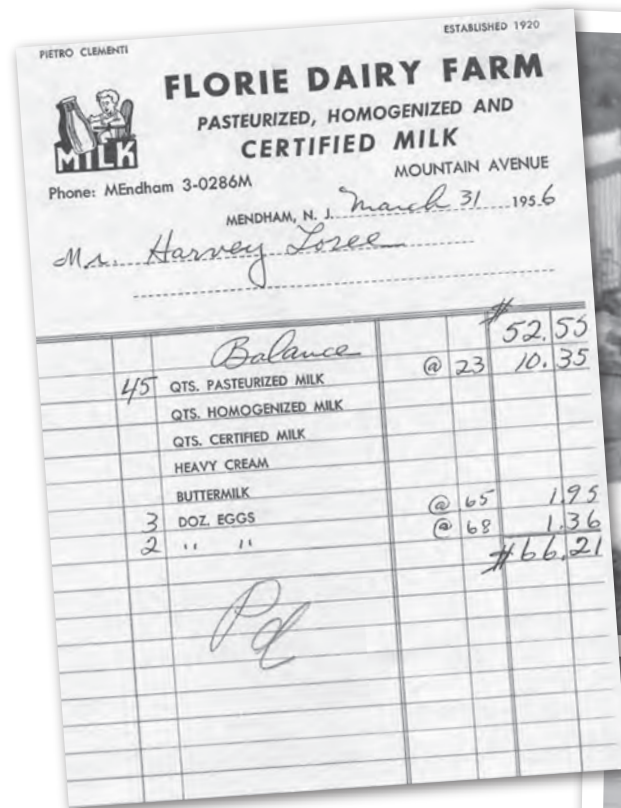 PIETRO CLEMENTI
ESTABLISHED 1920
FLORIE DAIRY FARM
PASTEURIZED, HOMOGENIZED AND
CERTIFIED MILK
MILK
Phone: MEndham 3-0286M
MOUNTAIN AVENUE
MENDHAM, N. J. March 31 1956
Mr. Harvey Loree
Balance $52.55
45 QTS. PASTEURIZED MILK @ 23 10.35
QTS. HOMOGENIZED MILK
QTS. CERTIFIED MILK
HEAVY CREAM
BUTTERMILK
3 DOZ. EGGS @ 65 1.95
2 " " @ 68 1.36
$66.21
Pd